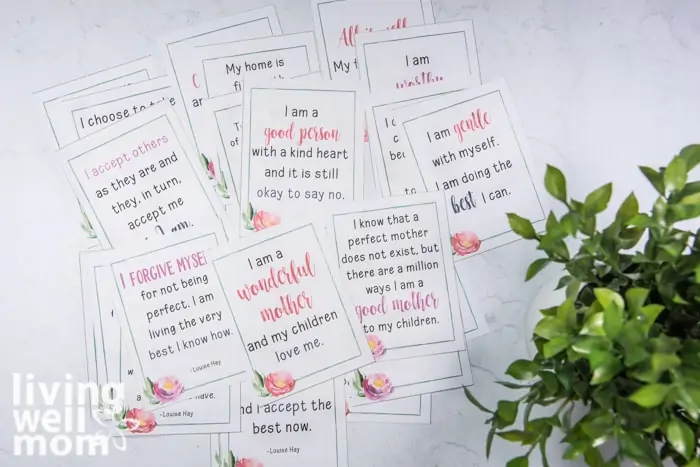 All is well
My f
I am
worthy
My home is
I choose to
I am a
good person
with a kind heart
and it is still
okay to say no.
I am gentle
with myself.
I am doing the
best I can.
I accept others
as they are and
they, in turn,
accept me
I am.
I know that a
perfect mother
does not exist, but
there are a million
ways I am a
good mother
to my children.
I FORGIVE MYSELF
for not being
perfect. I am
living the very
best I know how.
-Louise Hay
I am a
wonderful
mother
and my children
love me.
have.
-Louise Hay
and I accept the
best now.
-Louise Hay
living
well
mom